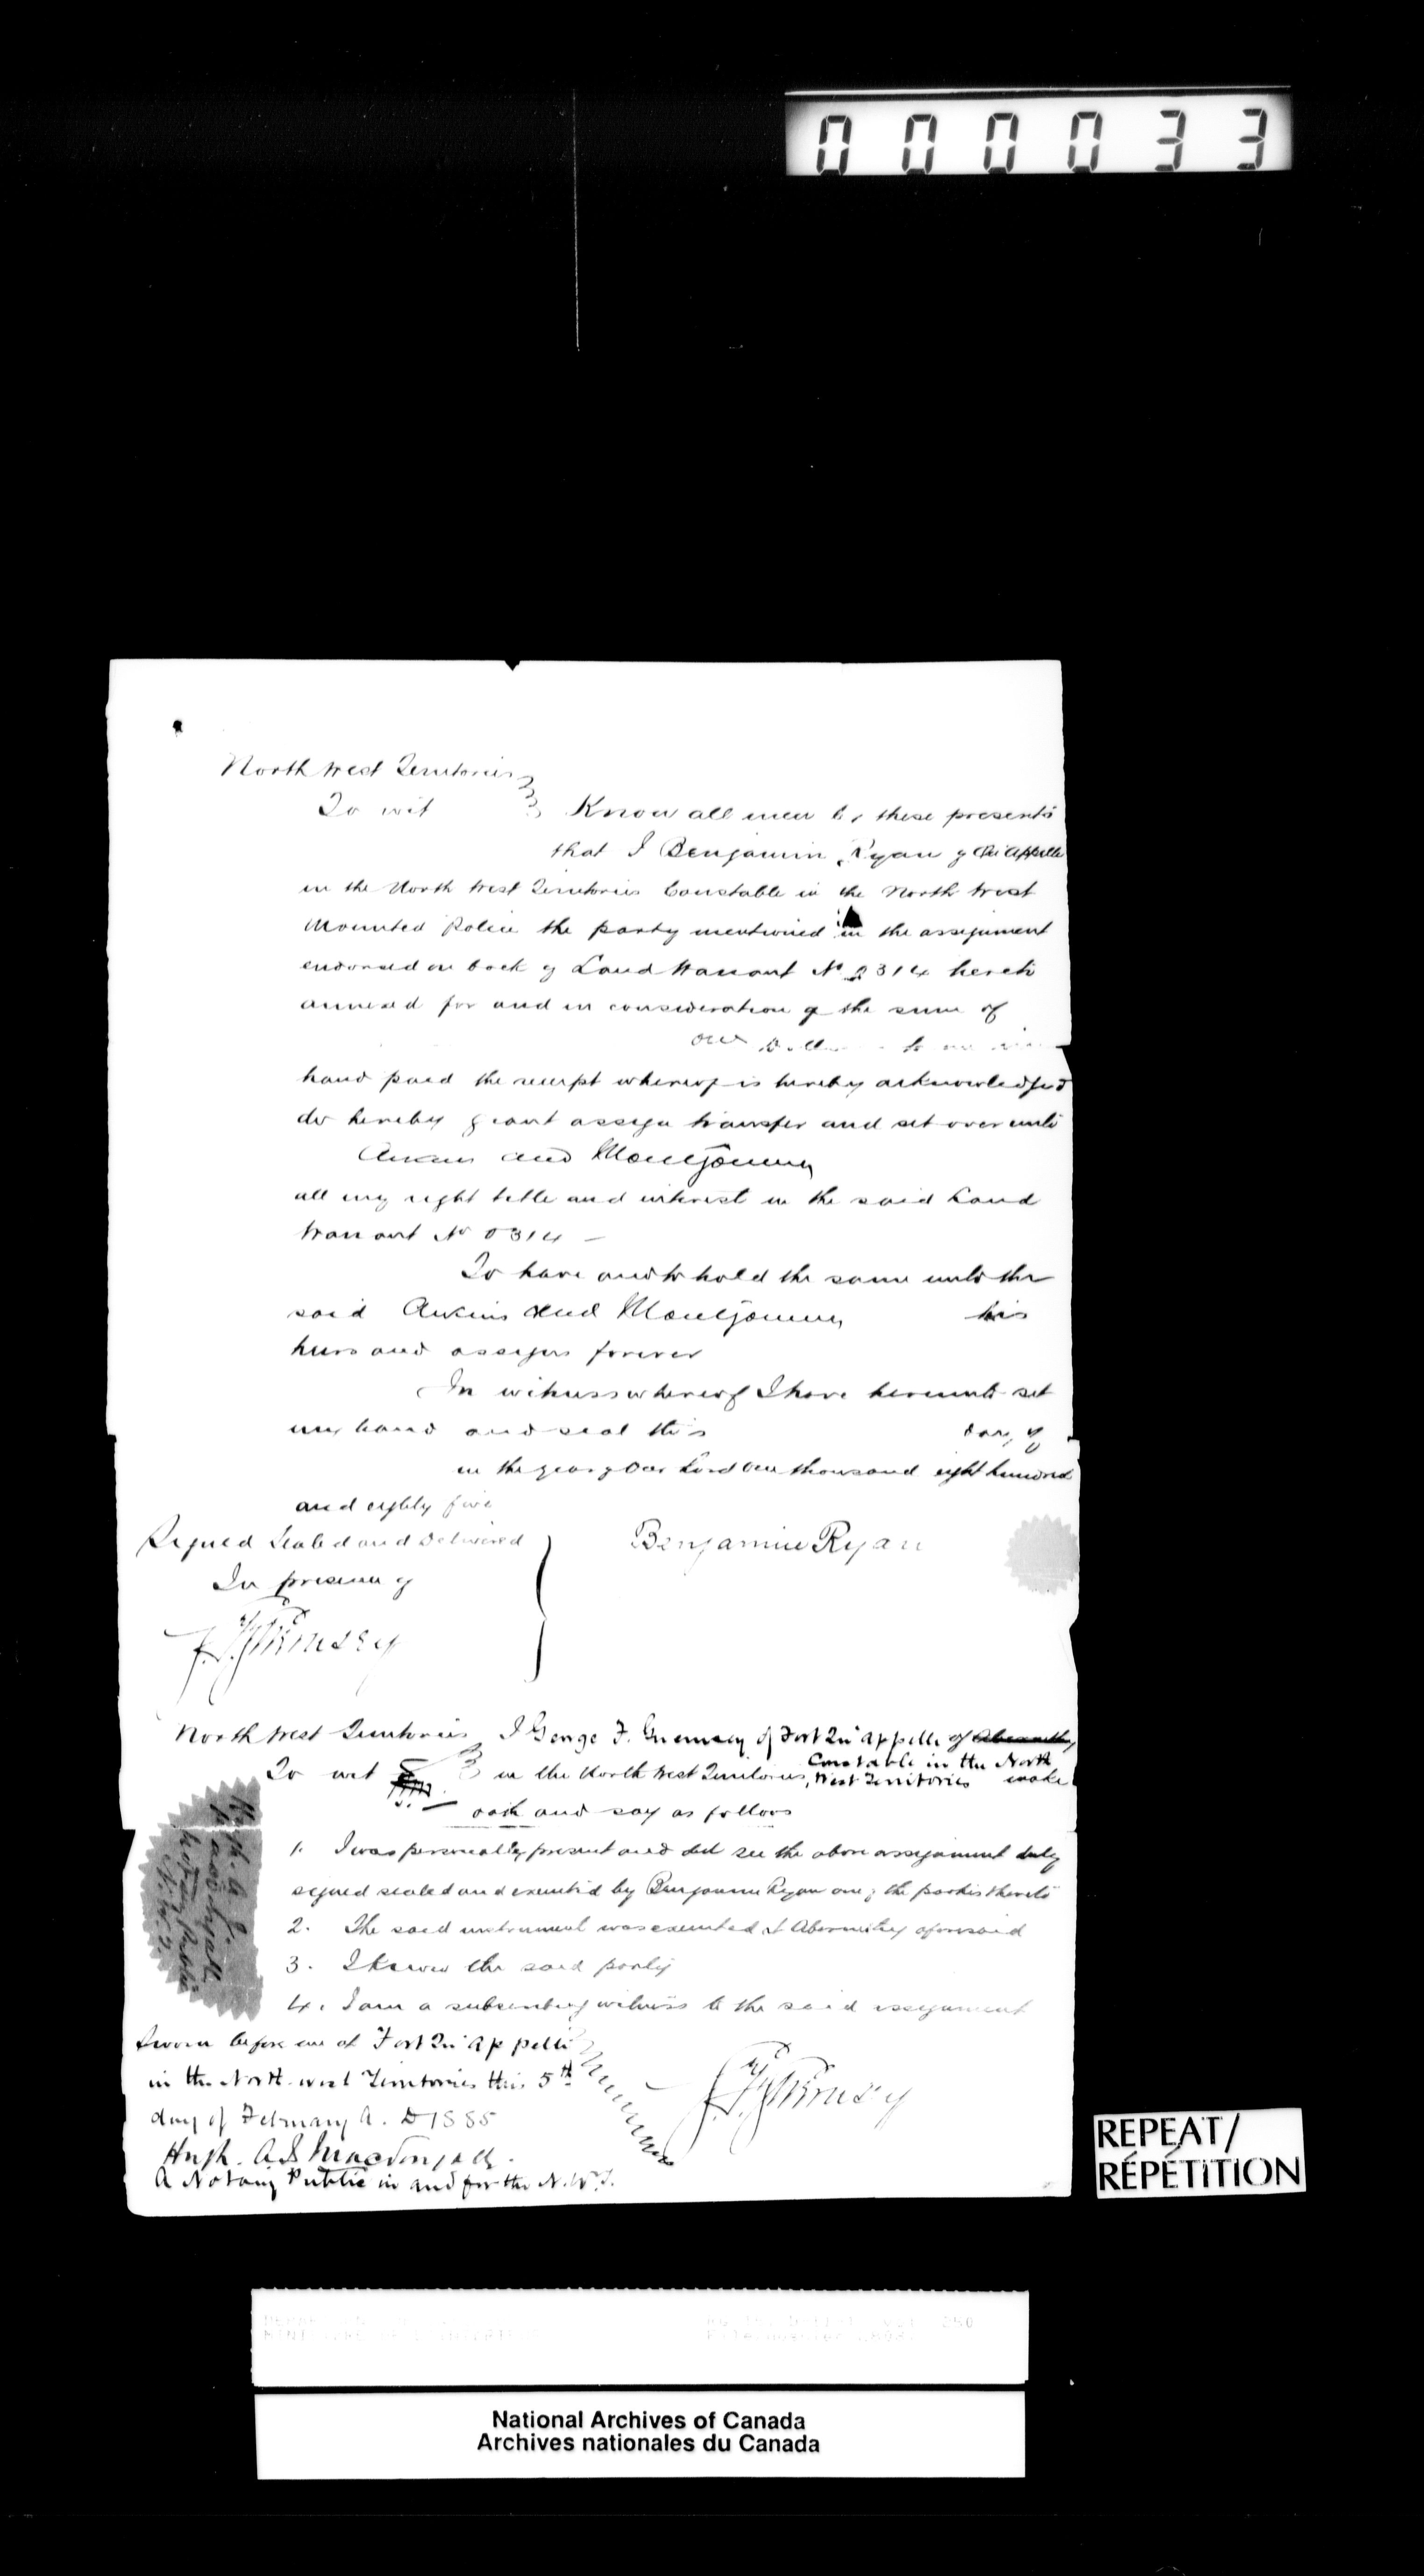 000033
North West Territories
To wit Know all men by these presents
that I Benjamin Ryan of Qu'Appelle
in the North West Territories Constable in the North West
Mounted Police the party mentioned in the assignment
endorsed on back of Land Warrant No 0314 hereto
annexed for and in consideration of the sum of
one Dollar to me in
hand paid the receipt whereof is hereby acknowledged
do hereby grant assign transfer and set over unto
and Montgomery
all my right title and interest in the said Land
Warrant No 0314 —
To have and to hold the same unto the
said and Montgomery his
heirs and assigns forever
In witness whereof I have hereunto set
my hand and seal this day of
in the year of Our Lord One thousand eight hundred
and eighty five
Signed Sealed and Delivered Benjamin Ryan
In presence of
North West Territories I George F. Guernsey of Fort Qu'appelle of Abernethy
Constable in the North
To wit in the North West Territories, West Territories make
oath and say as follows
1. I was personally present and did see the above assignment duly
signed sealed and executed by Benjamin Ryan one of the parties thereto
2. The said instrument was executed at Abernethy aforesaid
3. I know the said party
4. I am a subscribing witness to the said assignment
Sworn before me at Fort Qu'appelle
in the North-west Territories this 5th
day of February A.D 1885
Hugh. A. Macdougall.
A Notary Public in and for the N.W.T.
REPEAT/
RÉPÉTITION
National Archives of Canada
Archives nationales du Canada